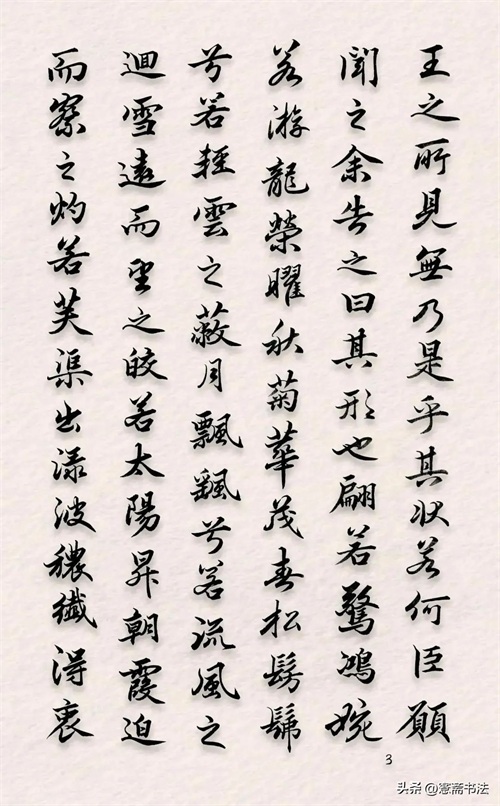 王之所見無乃是乎其狀若何臣願
聞之余告之曰其形也翩若驚鴻婉
若游龍榮曜秋菊華茂春松髣髴
兮若輕雲之蔽月飄颻兮若流風之
迴雪遠而望之皎若太陽昇朝霞迫
而察之灼若芙渠出淥波穠纖得衷
3
头条@寋斋书法